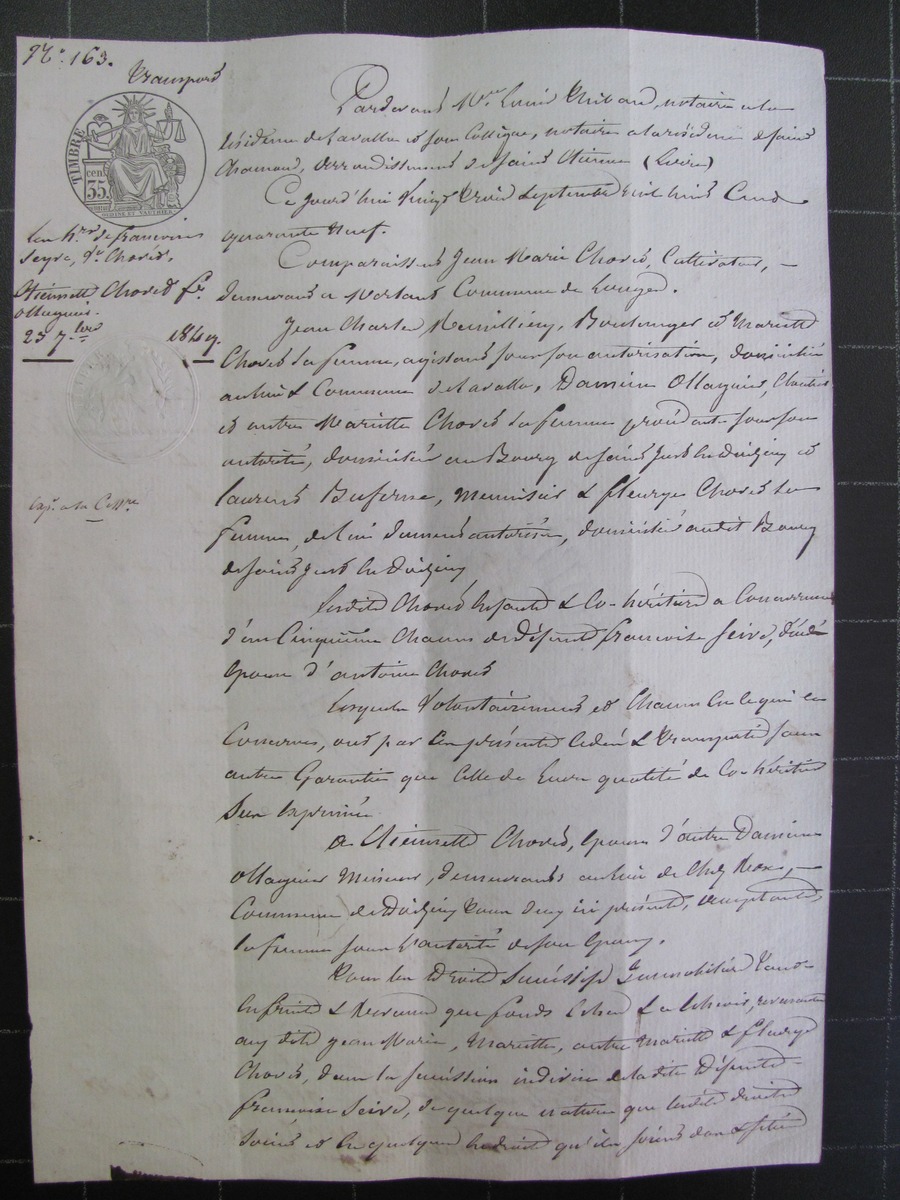 N.º 163.
Transport
TIMBRE
35
cent
Les h.rs de françoise
Seyve, v.e Chorel.
Etiennette Chorel f.e
Ollagnier.
23 7.bre 1849.
Pardevant M.tre Louis, notaire à la
résidence de Lavalla et son Collègue, notaire à la résidence de saint
Chamond, arrondissement de saint Etienne (Loire)
Ce jourd'hui vingt trois septembre mil huit Cent
quarante neuf.
Comparaissent Jean Marie Chorel, Cultivateur,
demeurant à Commune de
Jean Charles, Boulanger et Mariette
Chorel sa femme, agissant sous son autorisation, domiciliés
au lieu & Commune de Lavalla, Damien Ollagnier,
et autre Mariette Chorel sa femme procédante sous son
autorité, domiciliés au Bourg de saint Just en Doizieu et
Laurent, Menuisier & fleurye Chorel sa
femme, de lui dument autorisée, domiciliés audit Bourg
de saint Just en Doizieu
Lesdits Chorel Enfants & Co-héritiers à Concurrence
d'un Cinquième Chacun de défunte françoise Seive, décédée
épouse d'antoine Chorel
Lesquels volontairement et Chacun en ce qui les
Concerne, ont par ces présentes Cédé & transporté sans
autre Garantie que Celle de leurs qualités de Co-héritiers
sus exprimée
à Etiennette Chorel, épouse d'autre Damien
Ollagnier Mineur, demeurants au lieu de Chez
Commune de Doizieu tous deux ici présents, acceptante
la femme sous l'autorité de son époux.
Tous les Droits Successifs Immobiliers tant
en fruits & Revenus que fonds échus & à échoir, revenants
aux dits Jean Marie, Mariette, autre Mariette & fleurye
Chorel, dans la succession indivise de ladite défunte
françoise Seive, de quelque nature que lesdits droits
soient et en quelques endroits qu'ils soient dus & situés